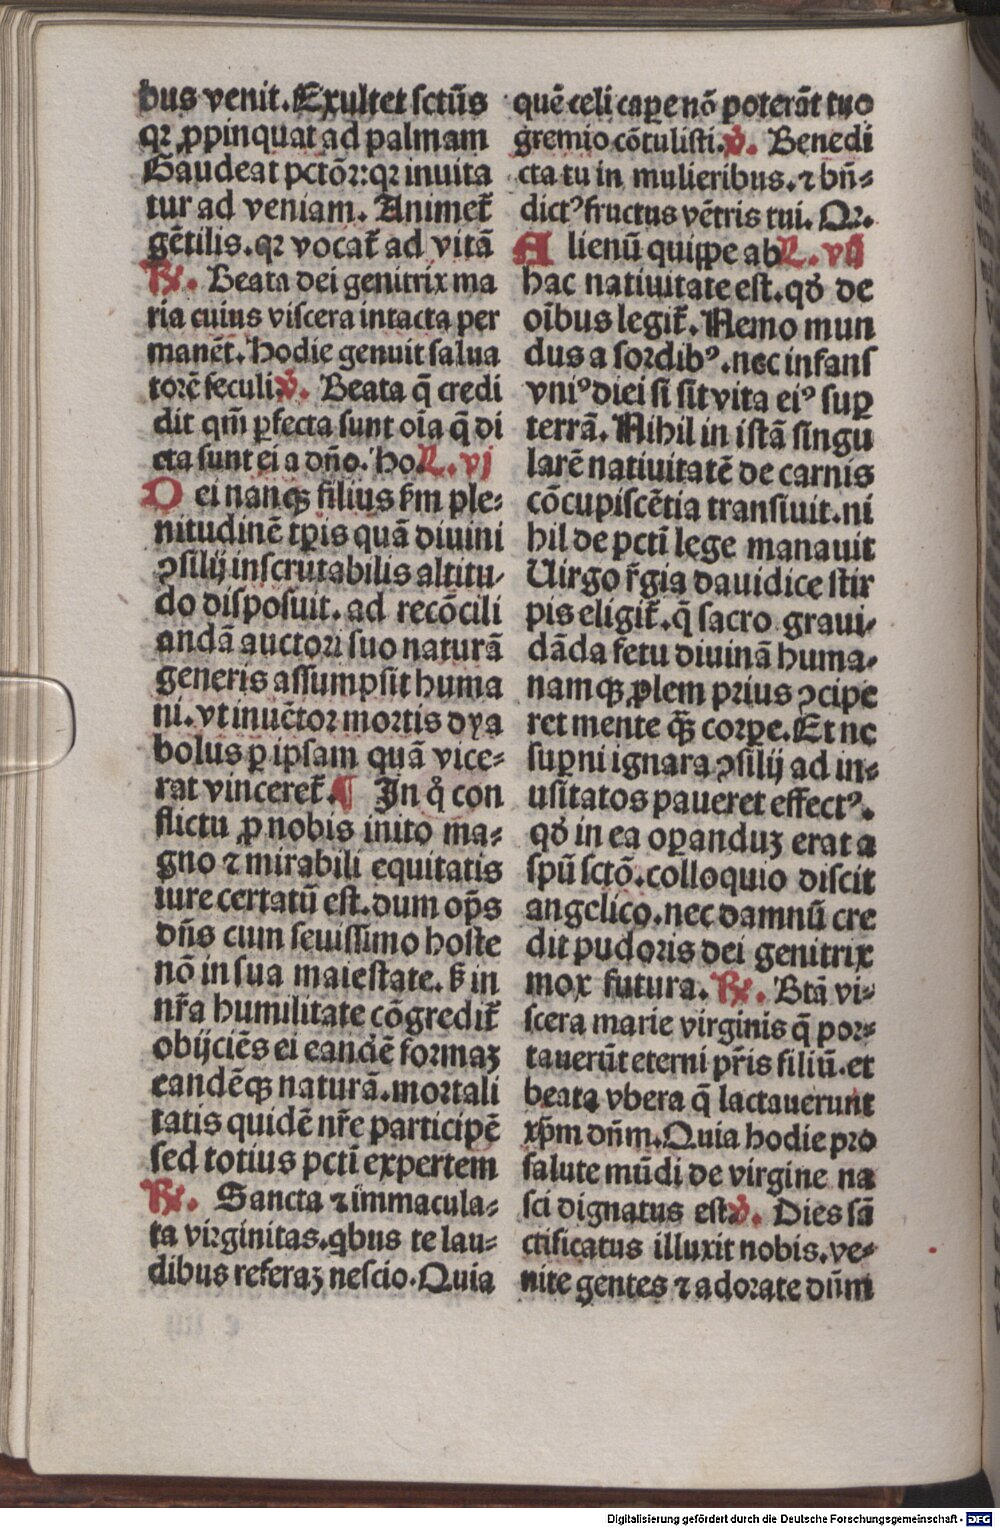 bus venit. Exultet sctūs
qꝛ ꝓpinquat ad palmam
Gaudeat pctōꝛ: qꝛ inuita
tur ad veniam. Animet᷑
gētilis. qꝛ vocat᷑ ad vitā
℞. Beata dei genitrix ma
ria cuius viscera intacta per
manēt. Hodie genuit salua
torē seculi. ℣. Beata q̄ credi
dit qm̄ ꝑfecta sunt oīa q̄ di
cta sunt ei a dn̄o. Ho. L. vj
Dei nanqꝫ filius ẜm ple⸗
nitudinē tꝑis quā diuini
ꝯsilij inscrutabilis altitu⸗
do disposuit. ad recōcili
andā auctori suo naturā
generis assumpsit huma
ni. vt inuētor mortis dya
bolus ꝑ ipsam quā vice⸗
rat vinceret᷑. ¶ In qͦ con
flictu ꝓ nobis inito ma⸗
gno ⁊ mirabili equitatis
iure certatū est. dum op̄s
dn̄s cum seuissimo hoste
nō in sua maiestate. ẜ in
nr̄a humilitate cōgredit᷑
obijciēs ei eandē formaꝫ
eandēqꝫ naturā. mortali
tatis quidē nr̄e participē
sed totius pcti expertem
℞. Sancta ⁊ immacula⸗
ta virginitas. qbus te lau⸗
dibus referaꝫ nescio. Quia
quē celi capere nō poterāt tuo
gremio cōtulisti. ℣. Benedi
cta tu in mulieribus. ⁊ bn̄⸗
dictꝰ fructus vētris tui. Qꝛ.
Alienū quippe ab L. vij
hac natiuitate est. qđ de
oībus legit᷑. Nemo mun
dus a sordibꝰ. nec infans
vniꝰ diei si sit vita eiꝰ suꝑ
terrā. Nihil in istā singu
larē natiuitatē de carnis
cōcupiscētia transiuit. ni
hil de pcti lege manauit
Uirgo r̄gia dauidice stir
pis eligit᷑. q̄ sacro graui⸗
dāda fetu diuinā huma⸗
namqꝫ ꝓlem prius ꝯcipe
ret mente qꝫ̄ corꝑe. Et ne
suꝑni ignara ꝯsilij ad in⸗
usitatos paueret effectꝰ.
qđ in ea oꝑanduꝫ erat a
spū sctō. colloquio discit
angelico. nec damnū cre
dit pudoris dei genitrix
mox futura. ℞. Btā vi⸗
scera marie virginis q̄ por⸗
tauerūt eterni pr̄is filiū. et
beata vbera q̄ lactauerunt
xp̄m dn̄m. Quia hodie pro
salute mūdi de virgine na
sci dignatus est. ℣. Dies sā
ctificatus illuxit nobis. ve⸗
nite gentes ⁊ adorate dn̄m
Digitalisierung gefördert durch die Deutsche Forschungsgemeinschaft - DFG